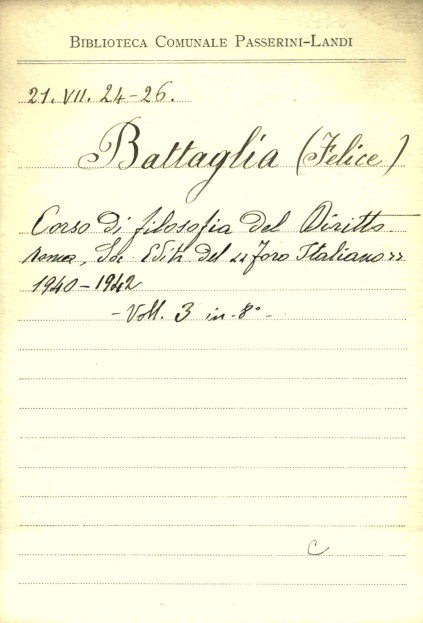 BIBLIOTECA COMUNALE PASSERINI-LANDI
21. VII. 24-26.
Battaglia (Felice)
Corso di filosofia del Diritto
Roma, Soc. Edit. del «Foro Italiano»
1940-1942
- Voll. 3 in-8° -
C